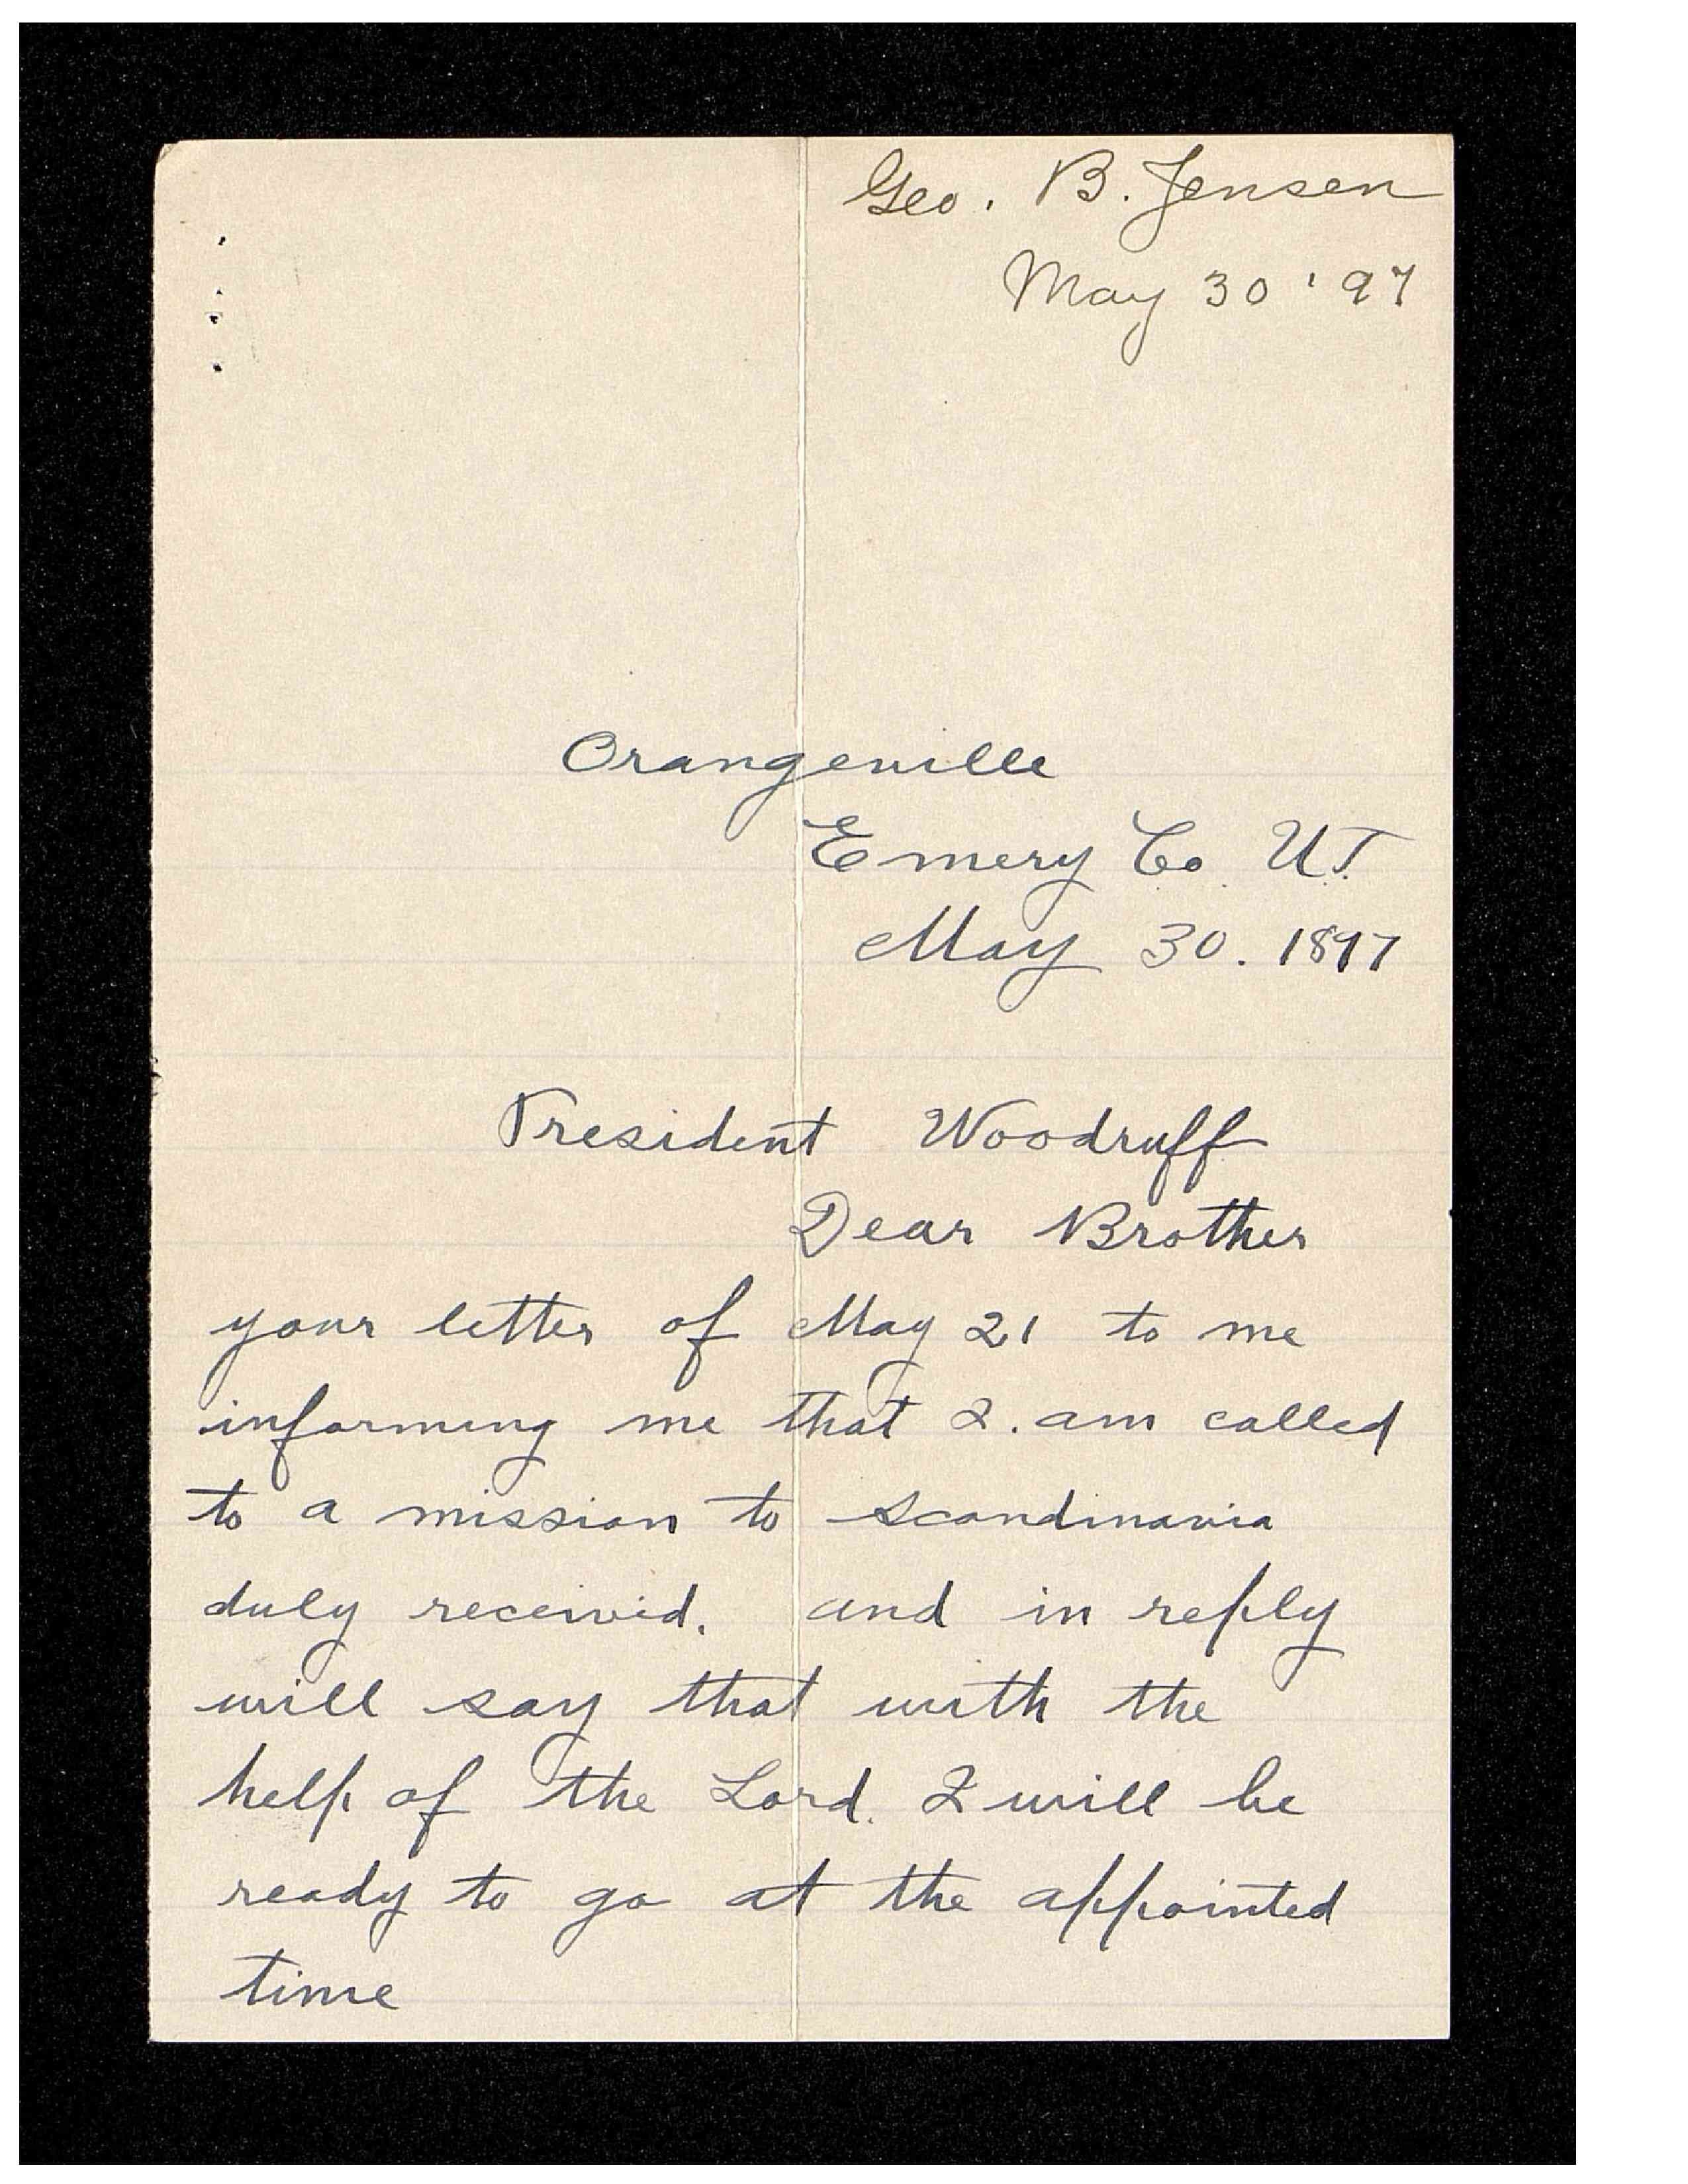 Geo. B. Jensen
May 30 '97
Orangeville
Emery Co. U.T.
May 30. 1897
President Woodruff
Dear Brother
your letter of May 21 to me
informing me that I. am called
to a mission to Scandinavia
duly receivid. and in reply
will say that with the
help of the Lord. I will be
ready to go at the appointed
time